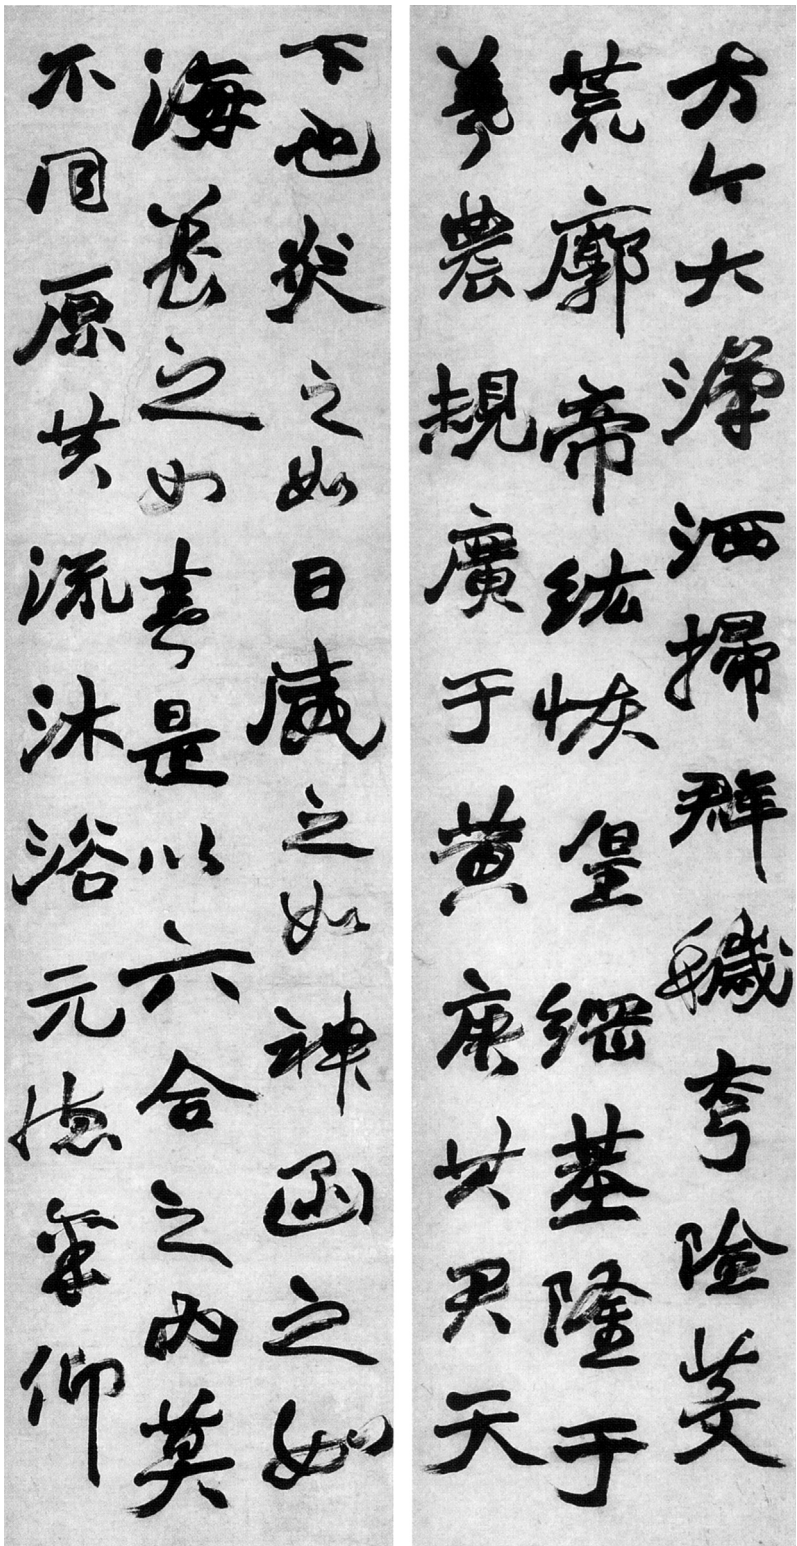 方今大漢洒掃群穢夷險芟
荒廓帝紘恢皇綱基隆于
羲農規廣于黃唐其君天
下也炎之如日威之如神函之如
海養之如春是以六合之內莫
不同原共流沐浴元德稟仰